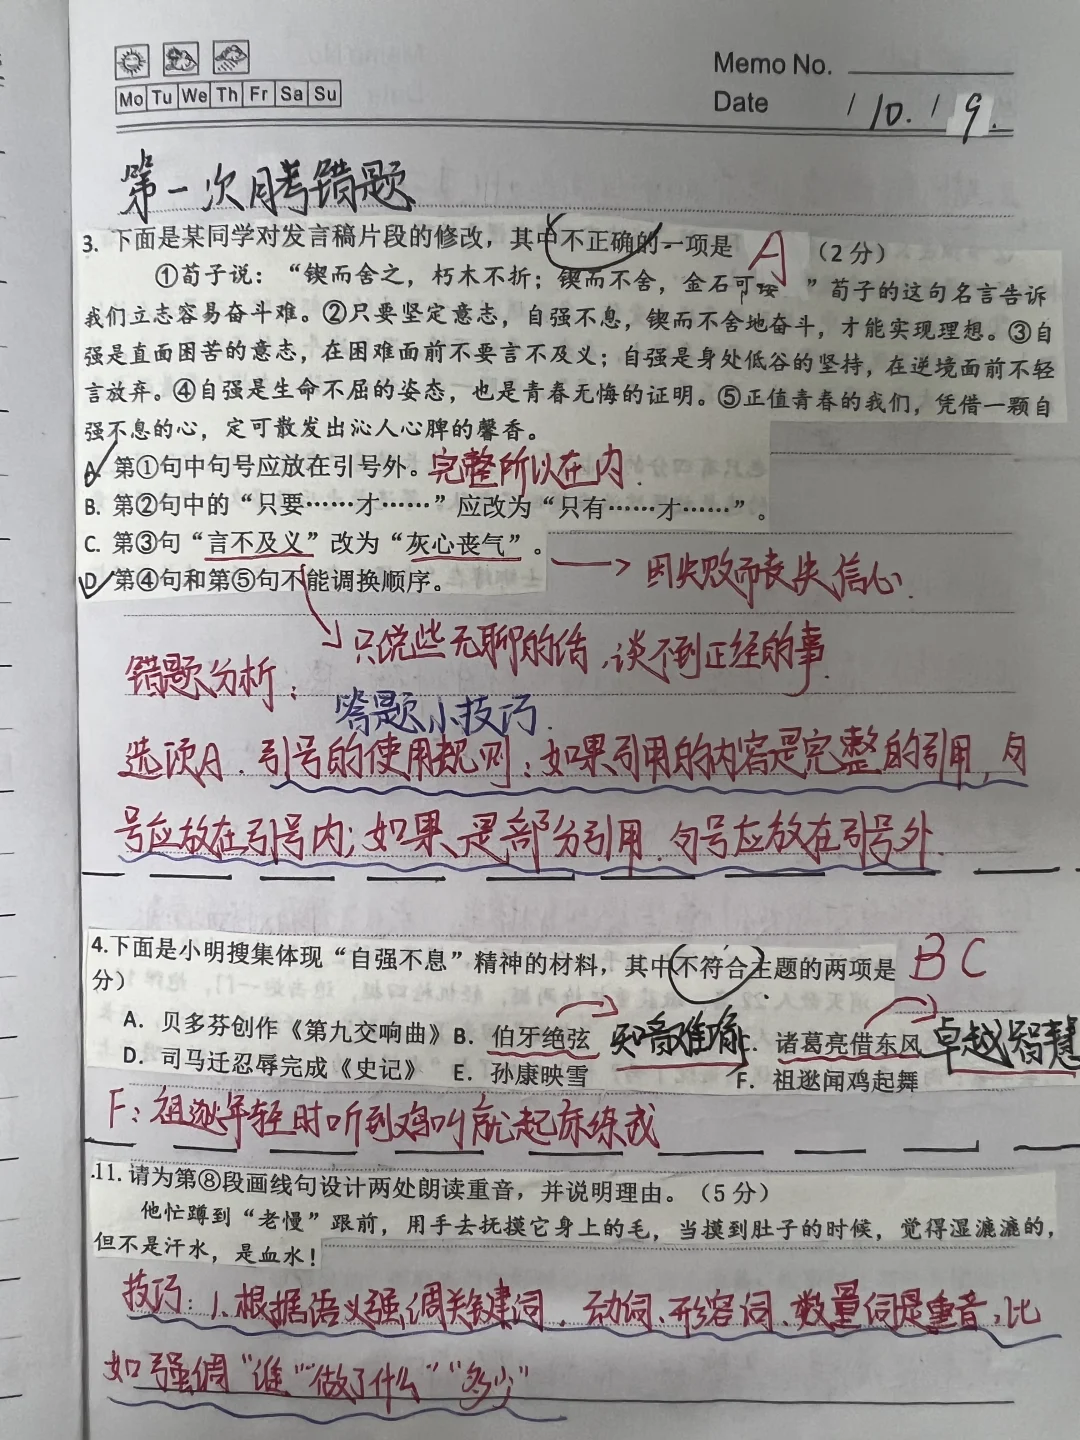 Memo No.
Mo Tu We Th Fr Sa Su
Date / 10. / 9.
第一次月考错题
3. 下面是某同学对发言稿片段的修改，其中不正确的一项是 A （2分）
①荀子说：“锲而舍之，朽木不折；锲而不舍，金石可 ”荀子的这句名言告诉
我们立志容易奋斗难。②只要坚定意志，自强不息，锲而不舍地奋斗，才能实现理想。③自
强是直面困苦的意志，在困难面前不要言不及义；自强是身处低谷的坚持，在逆境面前不轻
言放弃。④自强是生命不屈的姿态，也是青春无悔的证明。⑤正值青春的我们，凭借一颗自
强不息的心，定可散发出沁人心脾的馨香。
A. 第①句中句号应放在引号外。完整所以在内.
B. 第②句中的“只要……才……”应改为“只有……才……”。
C. 第③句“言不及义”改为“灰心丧气”。
因失败而丧失信心.
D 第④句和第⑤句不能调换顺序。
只说些无聊的话，谈不到正经的事.
错题分析：
答题小技巧.
选项A. 引号的使用规则：如果引用的内容是完整的引用，句
号应放在引号内；如果是部分引用，句号应放在引号外.
4.下面是小明搜集体现“自强不息”精神的材料，其中不符合主题的两项是 BC
分）
A. 贝多芬创作《第九交响曲》 B. 伯牙绝弦 知音难喻 C. 诸葛亮借东风 卓越智慧
D. 司马迁忍辱完成《史记》 E. 孙康映雪 F. 祖逖闻鸡起舞
F：祖逖年轻时听到鸡叫就起床练武
.11. 请为第⑧段画线句设计两处朗读重音，并说明理由。（5分）
他忙蹲到“老慢”跟前，用手去抚摸它身上的毛，当摸到肚子的时候，觉得湿漉漉的，
但不是汗水，是血水！
技巧：1、根据语义强调关键词，动词、形容词、数量词是重音，比
如强调“谁”“做了什么”“多少”